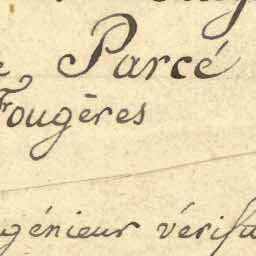 Parcé
Fougères
génieur vérifi